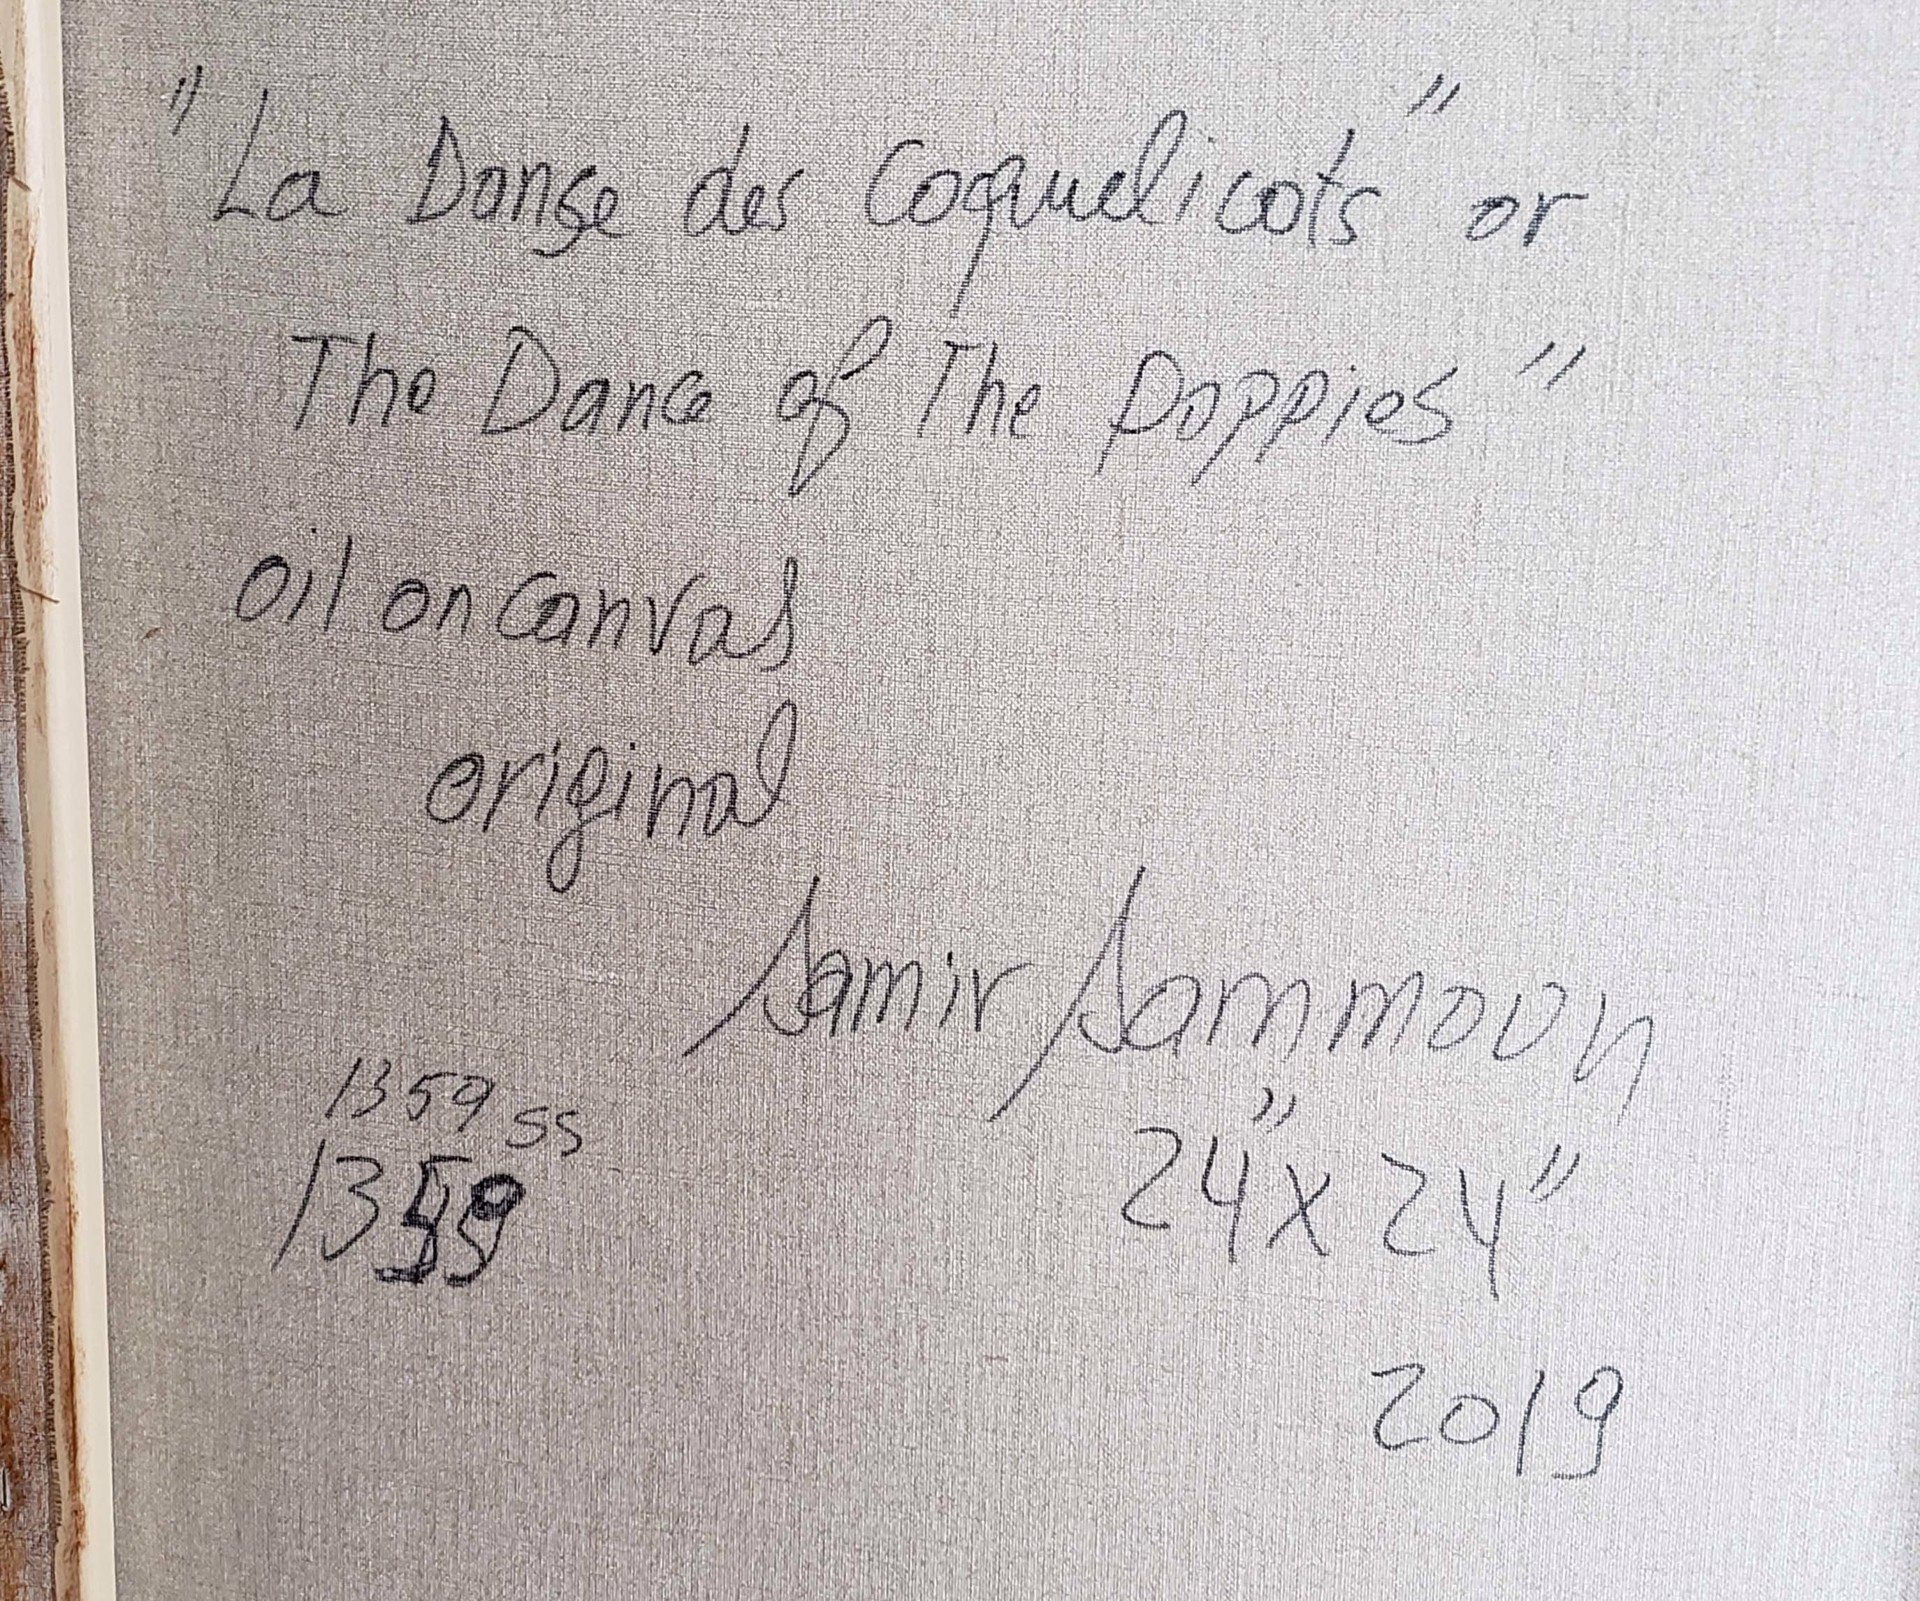 "La Danse des Coquelicots" or
The Dance of The Poppies"
oil on Canvas
original
Samir Sammoun
1359 SS
1359
24" x 24"
2019